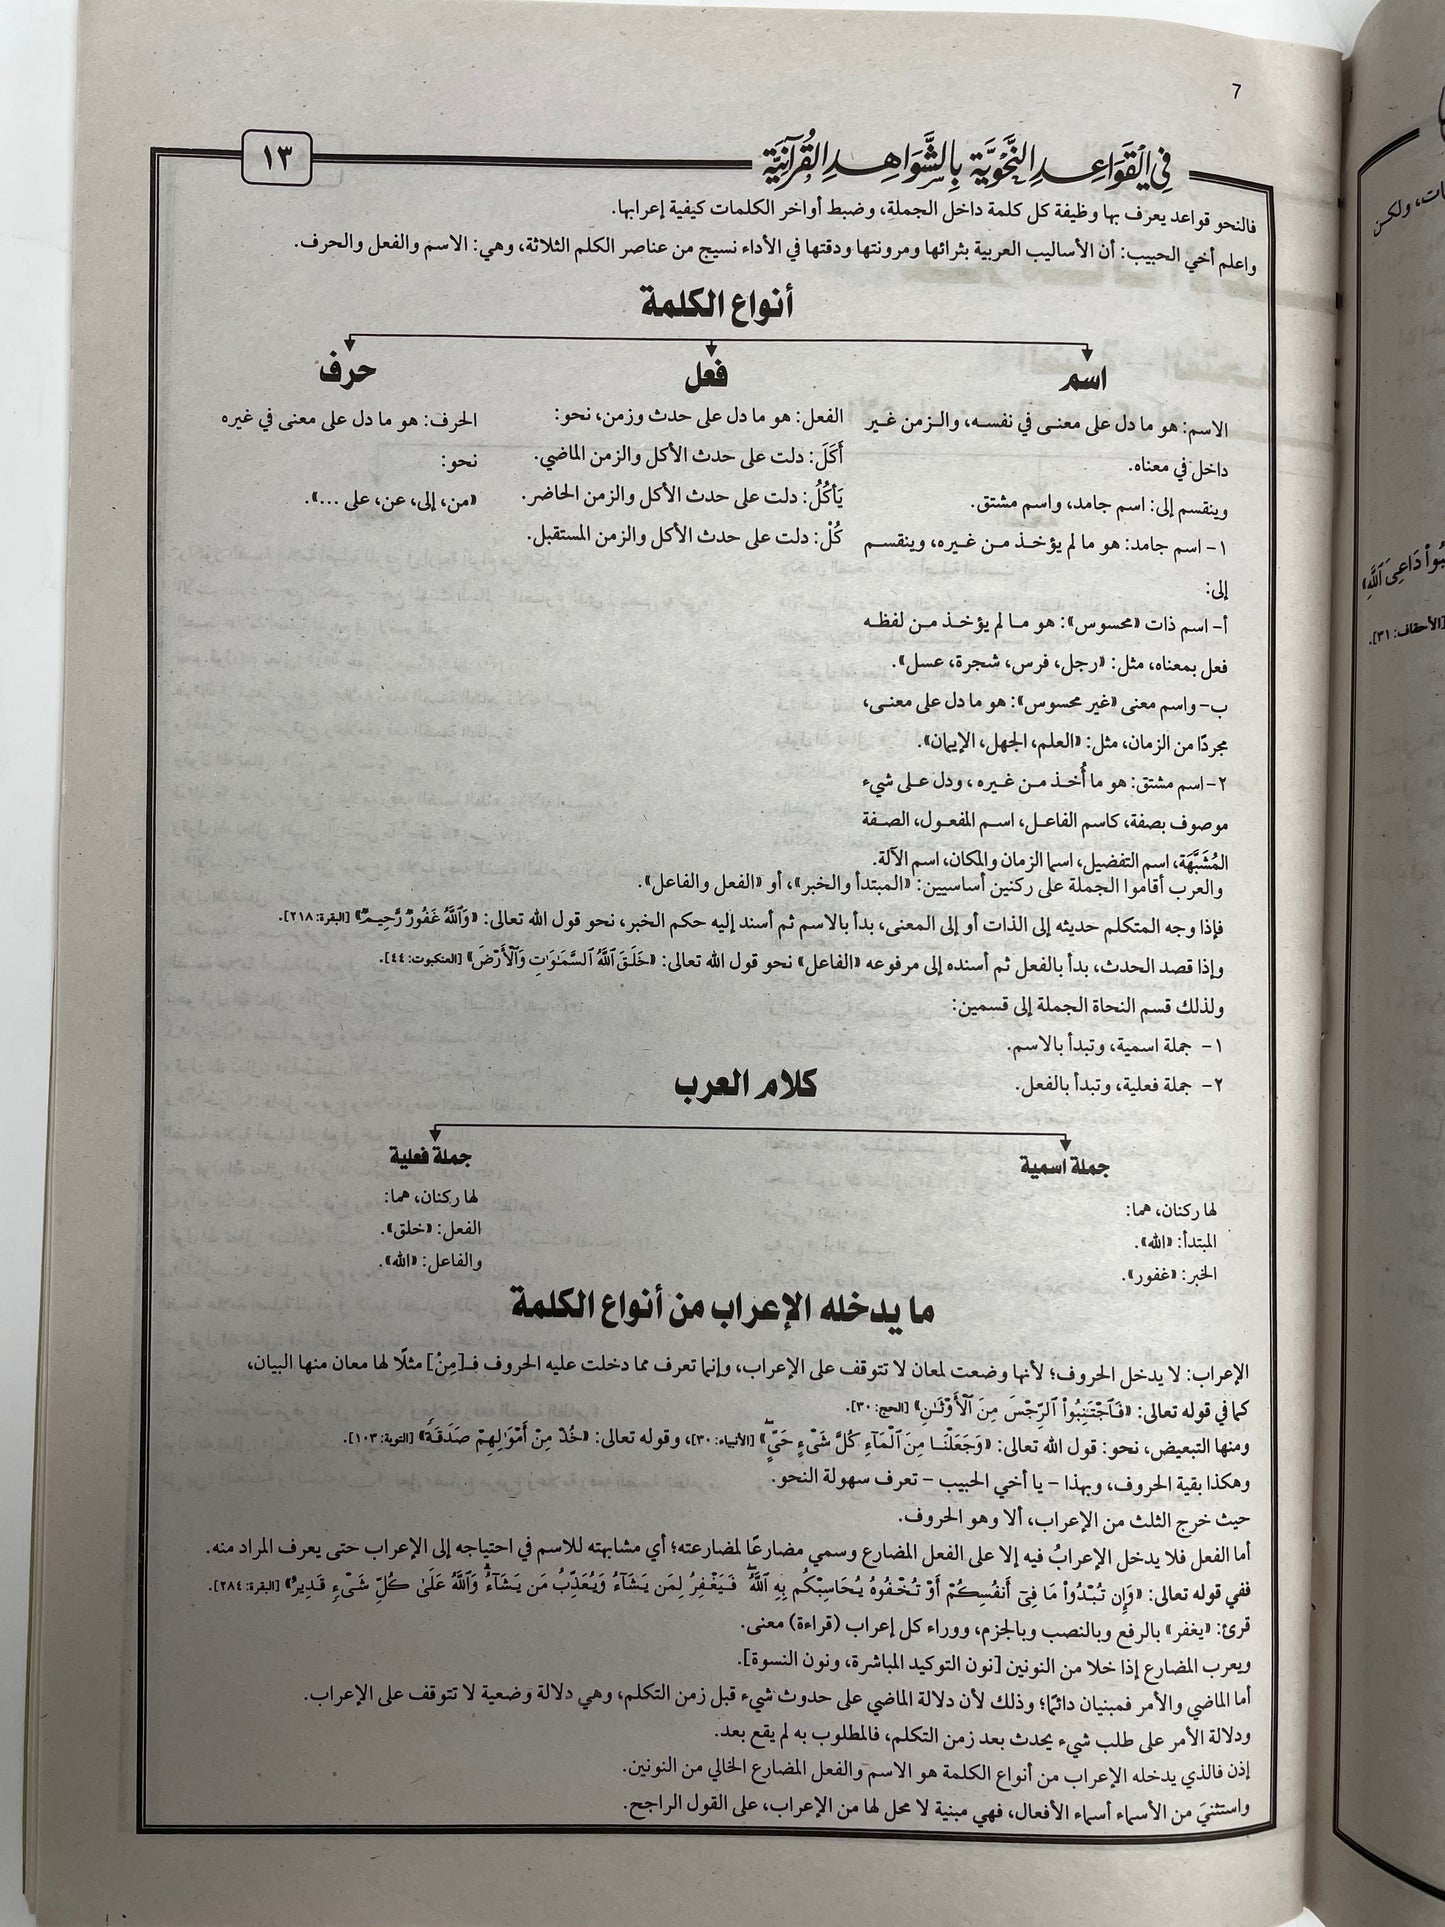 7
في القَوَاعِدِ النَّحْوِيَّة بِالشَّوَاهِدِ القُرآنيَّة
١٣
فالنحو قواعد يعرف بها وظيفة كل كلمة داخل الجملة، وضبط أواخر الكلمات كيفية إعرابها.
واعلم أخي الحبيب: أن الأساليب العربية بثرائها ومرونتها ودقتها في الأداء نسيج من عناصر الكلم الثلاثة، وهي: الاسم والفعل والحرف.
أنواع الكلمة
اسم
الاسم: هو ما دل على معنى في نفسه، والزمن غير
داخل في معناه.
وينقسم إلى: اسم جامد، واسم مشتق.
١- اسم جامد: هو ما لم يؤخذ من غيره، وينقسم
إلى:
أ- اسم ذات «محسوس»: هو ما لم يؤخذ من لفظه
فعل بمعناه، مثل: «رجل، فرس، شجرة، عسل».
ب- واسم معنى «غير محسوس»: هو ما دل على معنى،
مجردًا من الزمان، مثل: «العلم، الجهل، الإيمان».
٢- اسم مشتق: هو ما أُخذ من غيره، ودل على شيء
موصوف بصفة، كاسم الفاعل، اسم المفعول، الصفة
المُشَبَّهَة، اسم التفضيل، اسما الزمان والمكان، اسم الآلة.
فعل
الفعل: هو ما دل على حدث وزمن، نحو:
أَكَلَ: دلت على حدث الأكل والزمن الماضي.
يَأكُلُ: دلت على حدث الأكل والزمن الحاضر.
كُلْ: دلت على حدث الأكل والزمن المستقبل.
حرف
الحرف: هو ما دل على معنى في غيره
نحو:
«من، إلى، عن، على ...».
والعرب أقاموا الجملة على ركنين أساسيين: «المبتدأ والخبر»، أو «الفعل والفاعل».
فإذا وجه المتكلم حديثه إلى الذات أو إلى المعنى، بدأ بالاسم ثم أسند إليه حكم الخبر، نحو قول الله تعالى: «وَٱللَّهُ غَفُورٌ رَّحِيمٌ» [البقرة: ٢١٨].
وإذا قصد الحدث، بدأ بالفعل ثم أسنده إلى مرفوعه «الفاعل» نحو قول الله تعالى: «خَلَقَ ٱللَّهُ ٱلسَّمَٰوَٰتِ وَٱلْأَرْضَ» [العنكبوت: ٤٤].
ولذلك قسم النحاة الجملة إلى قسمين:
١- جملة اسمية، وتبدأ بالاسم.
٢- جملة فعلية، وتبدأ بالفعل.
كلام العرب
جملة اسمية
لها ركنان، هما:
المبتدأ: «الله».
الخبر: «غفور».
جملة فعلية
لها ركنان، هما:
الفعل: «خلق».
والفاعل: «الله».
ما يدخله الإعراب من أنواع الكلمة
الإعراب: لا يدخل الحروف؛ لأنها وضعت لمعان لا تتوقف على الإعراب، وإنما تعرف مما دخلت عليه الحروف فـ[مِنْ] مثلًا لها معان منها البيان،
كما في قوله تعالى: «فَٱجْتَنِبُوا۟ ٱلرِّجْسَ مِنَ ٱلْأَوْثَٰنِ» [الحج: ٣٠].
ومنها التبعيض، نحو: قول الله تعالى: «وَجَعَلْنَا مِنَ ٱلْمَآءِ كُلَّ شَىْءٍ حَىٍّ» [الأنبياء: ٣٠]، وقوله تعالى: «خُذْ مِنْ أَمْوَٰلِهِمْ صَدَقَةً» [التوبة: ١٠٣].
وهكذا بقية الحروف، وبهذا – يا أخي الحبيب – تعرف سهولة النحو.
حيث خرج الثلث من الإعراب، ألا وهو الحروف.
أما الفعل فلا يدخل الإعرابُ فيه إلا على الفعل المضارع وسمي مضارعًا لمضارعته؛ أي مشابهته للاسم في احتياجه إلى الإعراب حتى يعرف المراد منه.
ففي قوله تعالى: «وَإِن تُبْدُوا۟ مَا فِىٓ أَنفُسِكُمْ أَوْ تُخْفُوهُ يُحَاسِبْكُم بِهِ ٱللَّهُ فَيَغْفِرُ لِمَن يَشَآءُ وَيُعَذِّبُ مَن يَشَآءُ وَٱللَّهُ عَلَىٰ كُلِّ شَىْءٍ قَدِيرٌ» [البقرة: ٢٨٤].
قرئ: «يغفر» بالرفع وبالنصب وبالجزم، ووراء كل إعراب (قراءة) معنى.
ويعرب المضارع إذا خلا من النونين [نون التوكيد المباشرة، ونون النسوة].
أما الماضي والأمر فمبنيان دائمًا؛ وذلك لأن دلالة الماضي على حدوث شيء قبل زمن التكلم، وهي دلالة وضعية لا تتوقف على الإعراب.
ودلالة الأمر على طلب شيء يحدث بعد زمن التكلم، فالمطلوب به لم يقع بعد.
إذن فالذي يدخله الإعراب من أنواع الكلمة هو الاسم والفعل المضارع الخالي من النونين.
واستثنيَ من الأسماء أسماء الأفعال، فهي مبنية لا محل لها من الإعراب، على القول الراجح.
ولكن
دَاعِىَ ٱللَّهِ»
[الأحقاف: ٣١].